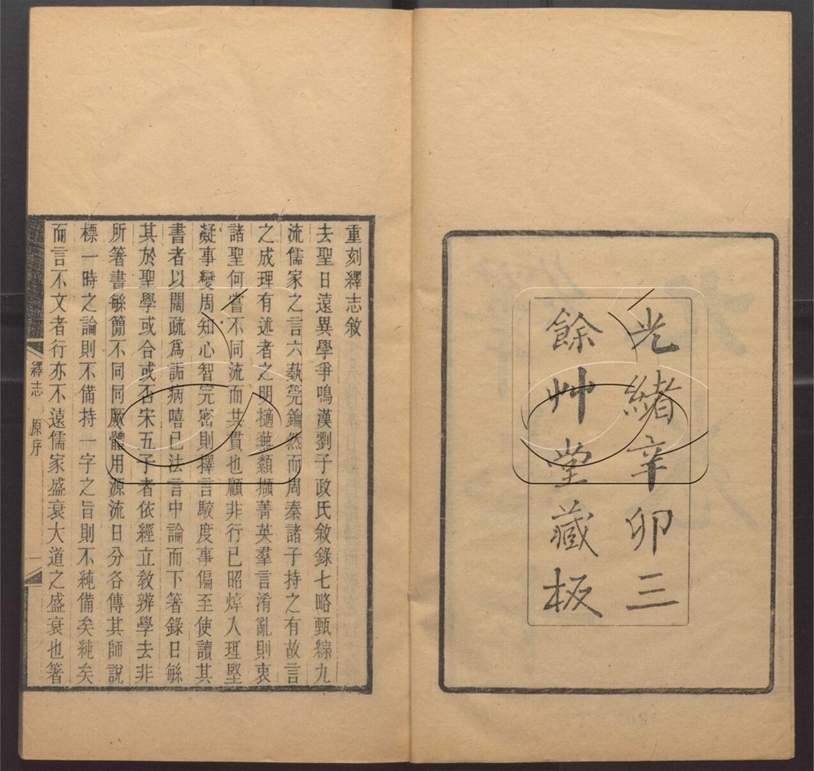 光緒辛卯三
餘艸堂藏板
重刻繹志敘
去聖日遠異學爭鳴漢劉子政氏敘錄七略甄綜九
流儒家之言六蓺筦鑰然而周秦諸子持之有故言
之成理有述者之明擿葉纇擷菁英羣言淆亂則衷
諸聖何嘗不同流而共貫也顧非行已昭焯人理堅
凝事變周知心智完密則擇言駮度事偏至使讀其
書者以闊疏爲詬病嘻已法言中論而下箸錄日緐
其於聖學或合或否宋五子者依經立敎辨學去非
所箸書緐簡不同同厥體用源流日分各傳其師說
標一時之論則不備持一字之旨則不純備矣純矣
而言不文者行亦不遠儒家盛衰大道之盛衰也箸
繹志 原序 一